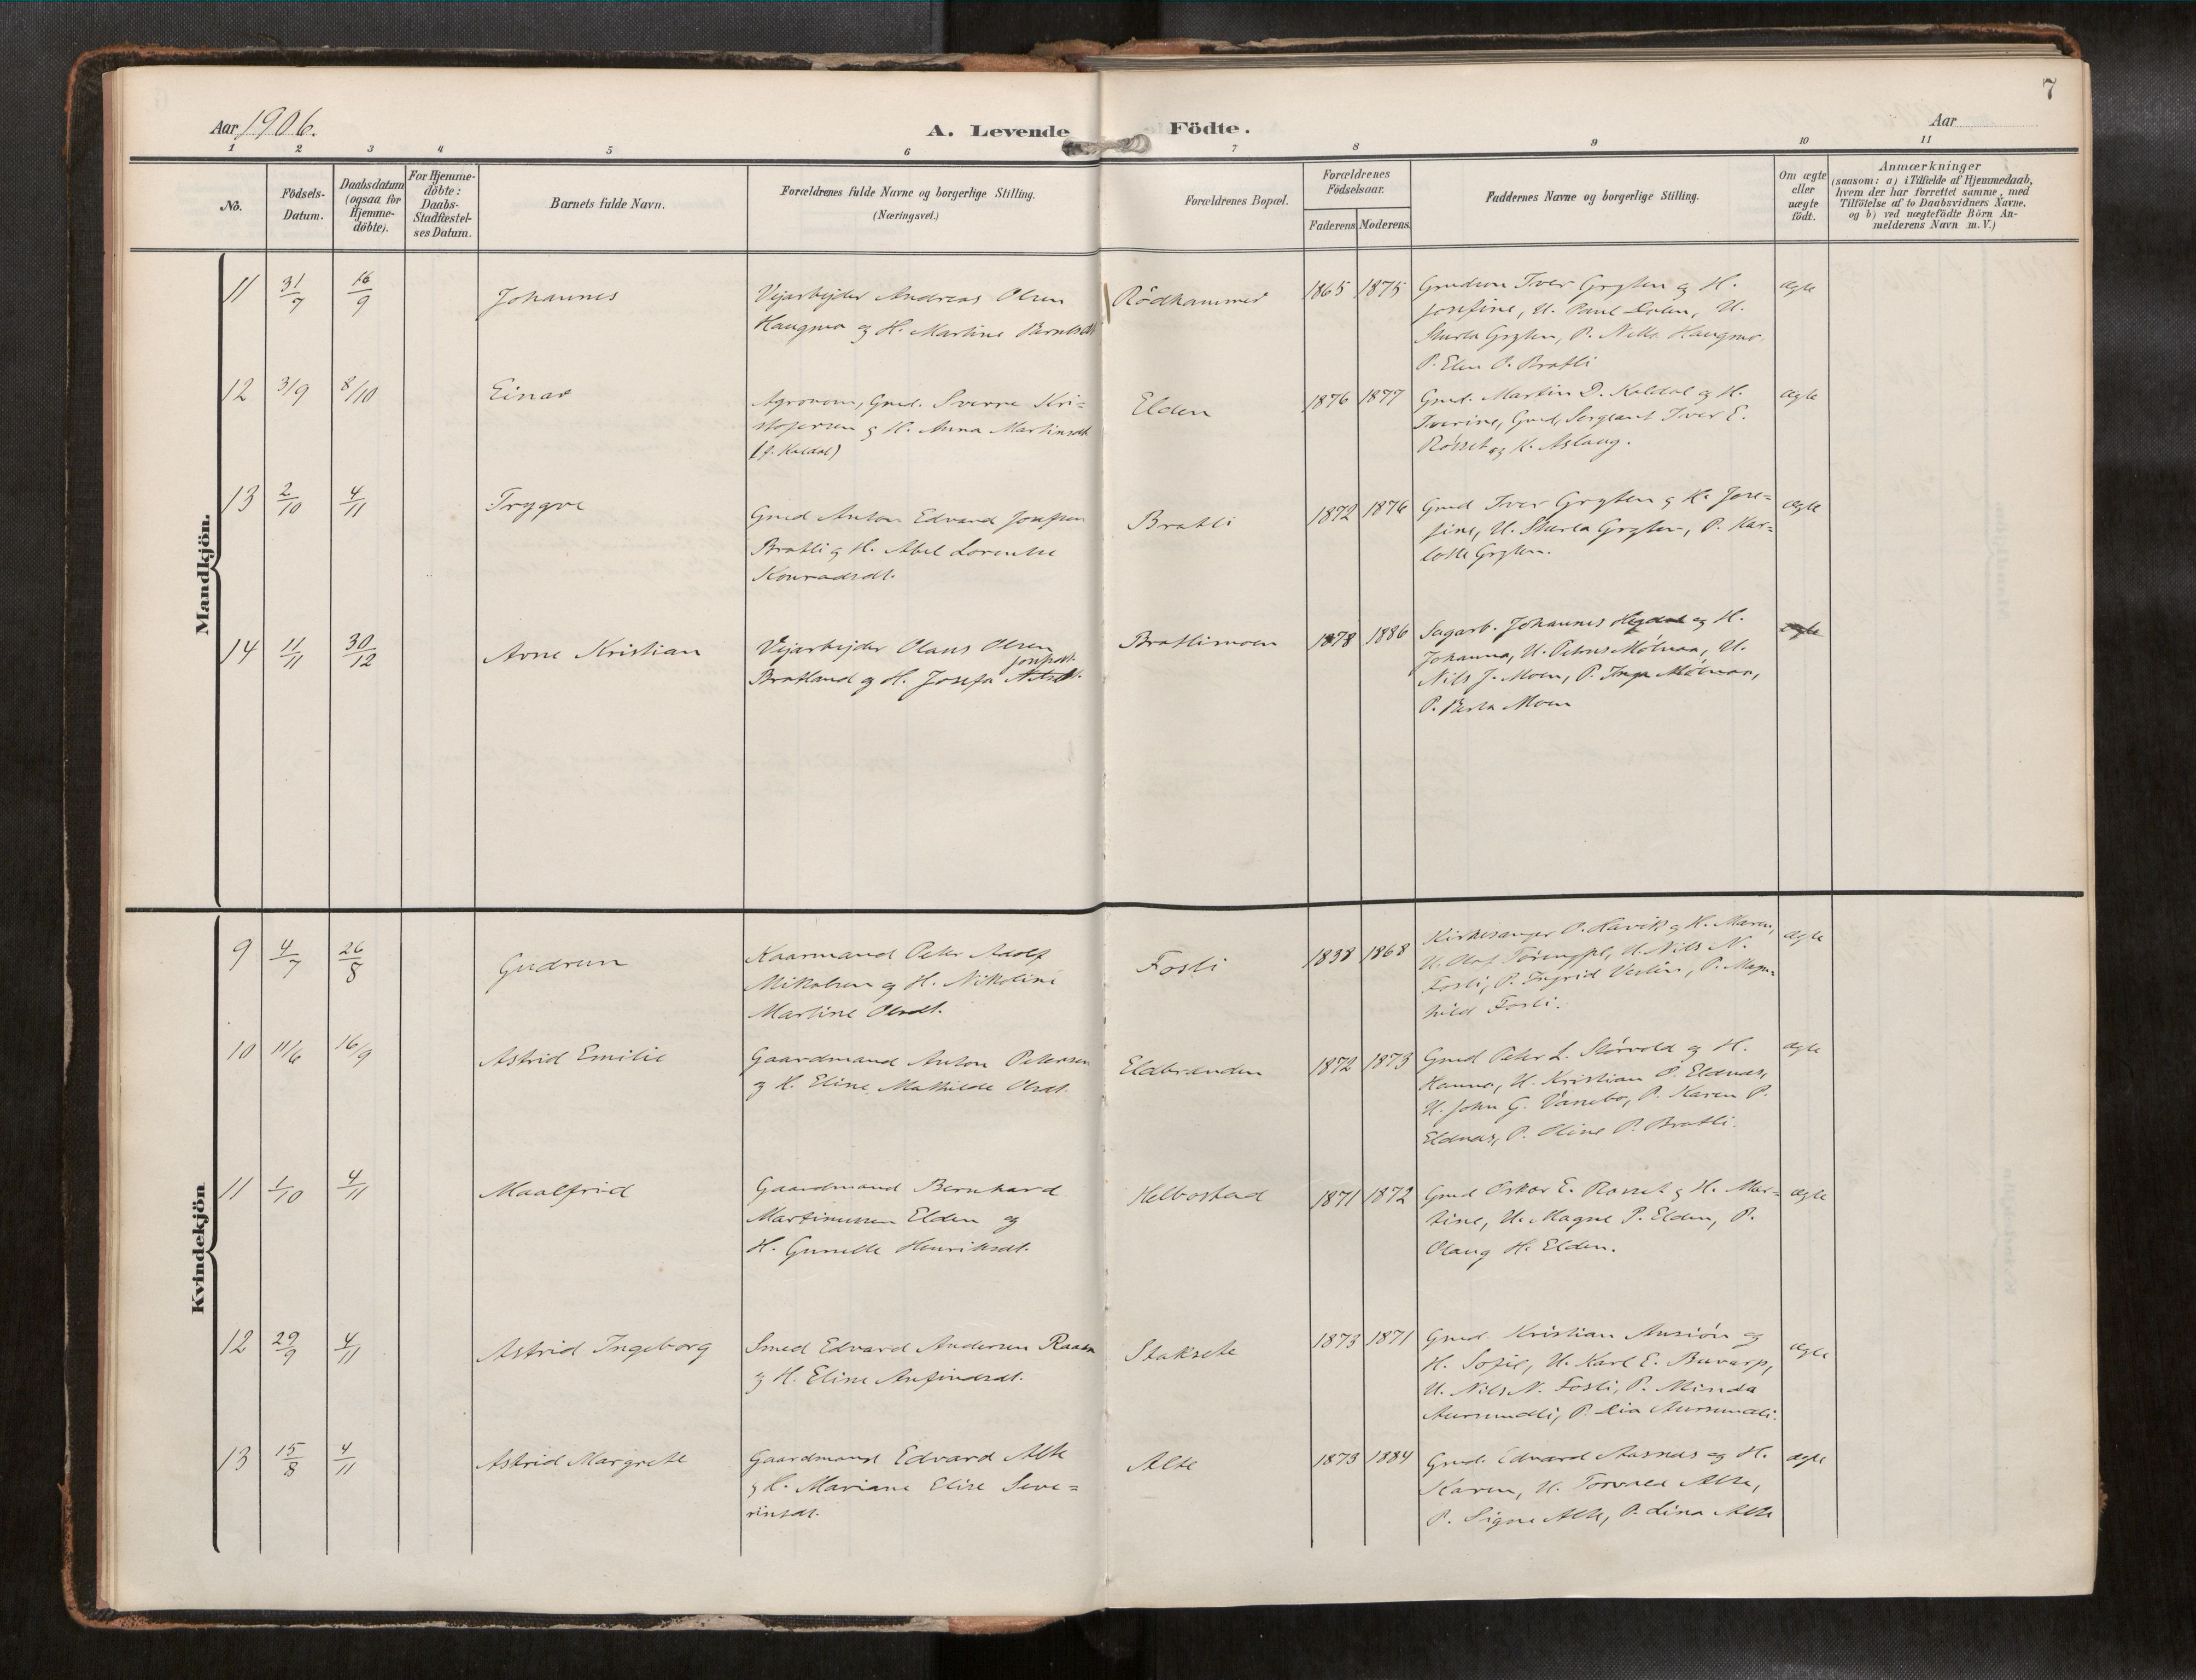 7
Aar 1906.
A. Levende Födte.
Aar
1 2 3 4 5 6 7 8 9 10 11
No.
Födsels-Datum.
Daabsdatum (ogsaa for Hjemme-döbte).
For Hjemme-döbte: Daabs-Stadfæstel-ses Datum.
Barnets fulde Navn.
Forældrenes fulde Navne og borgerlige Stilling.
(Næringsvei.)
Forældrenes Bopæl.
Forældrenes Födselsaar.
Faderens. Moderens.
Faddernes Navne og borgerlige Stilling.
Om ægte eller uægte födt.
Anmærkninger
(saasom: a) i Tilfælde af Hjemmedaab,
hvem der har forrettet samme, med
Tilföielse af to Daabsvidners Navne,
og b) ved uægtefödte Börn An-
melderens Navn m. V.)
Mandkjön.
11 31/7 16/9 Johannes
Vejarbejder Andreas Olsen
Haugmo og H. Martine Berntsdt
Rödhammer 1865 1875
Grudmn Iver GrYten og H.
Josefine, U. Paul Elden, U.
Sturla Gryten, P. Nella Haugmo
P. Elen O. Bratli
ægte
12 3/9 8/10 Einar
Agronom, Grmd. Sverre Kri-
stofersen og H. Anna Martinsdt
(f. Kaldal)
Elden 1876 1877
Grmd. Martin D. Kaldal og H.
Iverine, Grmd, Sergeant Iver E.
Rosset og H. Aslaug.
ægte
13 2/10 4/11 Trygve
Grmd Anton Edvard Josefsen
Bratli og H. Abel Lorentse
Konradsdt.
Bratli 1872 1876
Grmd Iver Gryten og H. Jose-
fine, U. Sturla Gryten, P. Kar-
lotte Gryten.
ægte
14 11/11 30/12 Arne Kristian
Vejarbejder Olaus Olsen
Josefsdt.
Bratland og H. Josefa
Bratlimoen 1878 1886
Sagarb. Johannes og H.
Johanna, U. Petrus Mölnaa, U.
Nils J. Moen, P. Inga Mölnaa,
P. Berta Moen
ægte
Kvindekjön
9 4/7 26/8 Gudrun
Kaarmand Peter Adolf
Mikalsen og H. Nikoline
Martine Olsdt.
Fosli 1838 1868
Kirkesanger O. Havik og H. Maren,
U. Olaf, U. Nils N.
Fosli, P. Ingrid Veslien, P. Magn-
hild Fosli.
ægte
10 11/6 16/9 Astrid Emilie
Gaardmand Anton Petersen
og H. Eline Mathilde Olsdt.
Eldbranden 1872 1873
Grmd Peter L. Störvold og H.
Hanna, U. Kristian P. Eldnes,
U. John G. Vannebo, P. Karen P.
Eldnes, P. Oline P. Bratli.
ægte
11 1/10 4/11 Maalfrid
Gaardmand Bernhard
Martinussen Elden og
H. Gunelle Henriksdt.
Helbostad 1871 1872
Grmd Oskar E. Rosset og H. Mar-
tine, U. Magne P. Elden, P.
Olaug H. Elden.
ægte
12 29/9 4/11 Astrid Ingeborg
Smed Edvard Andersen Raaen
og H. Eline Anfindsdt.
Staksete 1873 1871
Grmd. Kristian Ansiön og
H. Sofie, U. Karl E. Buvarp,
U. Nils N. Fosli, P. Minda
Aursundli, P. Lia Aursundli.
ægte
13 15/8 4/11 Astrid Margrete
Gaardmand Edvard Alte
og H. Mariane Elise Seve-
rinsdt.
Alte 1873 1884
Grmd. Edvard Aasnes og H.
Karen, U. Torvald Alte,
P. Signe Alte, P. Lina Alte
ægte